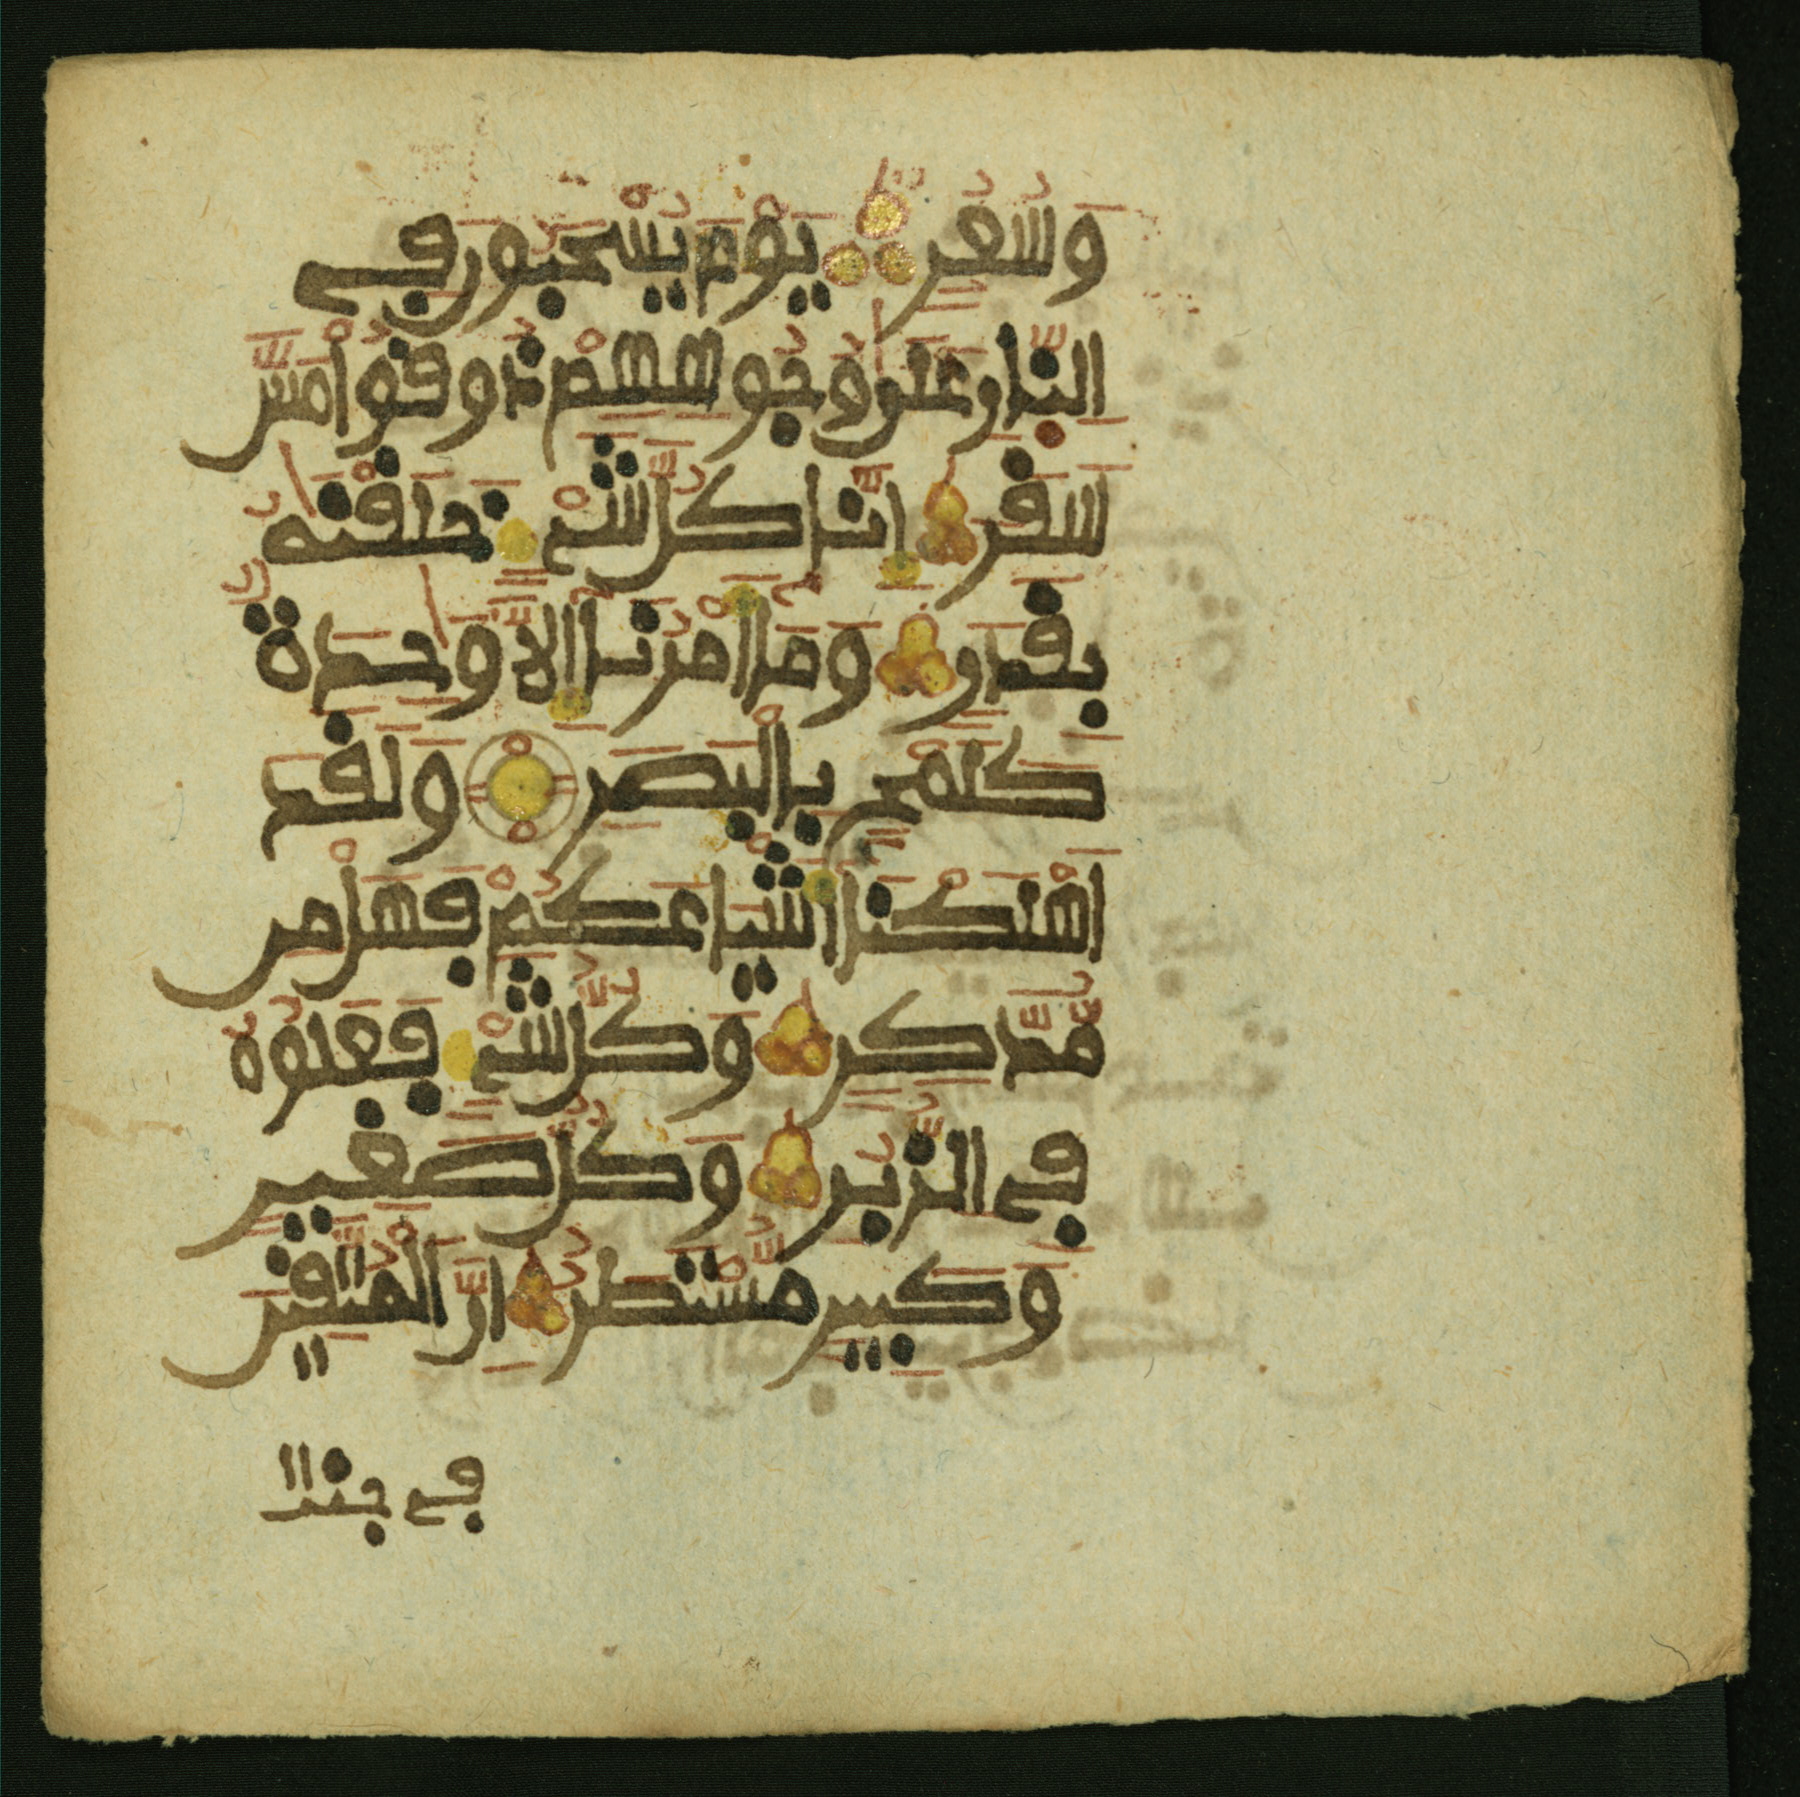 وَسُعُرٍ يَوْمَ يُسْحَبُونَ فِي
النَّارِ عَلَىٰ وُجُوهِهِمْ ذُوقُواْ مَسَّ
سَقَرَ إِنَّا كُلَّ شَيْءٍ خَلَقْنَٰهُ
بِقَدَرٍ وَمَا أَمْرُنَا إِلَّا وَٰحِدَةٌ
كَلَمْحٍ بِالْبَصَرِ وَلَقَدَ
اَهْلَكْنَا أَشْيَاعَكُمْ فَهَلْ مِن
مُّدَّكِرٍ وَكُلُّ شَيْءٍ فَعَلُوهُ
فِي الزُّبُرِ وَكُلُّ صَغِيرٍ
وَكَبِيرٍ مُّسْتَطَرٌ إِنَّ الْمُتَّقِينَ
في جنت